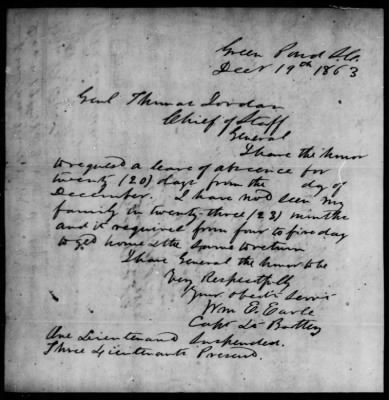 Green Pond S.C.
Decr 19th 1863
Genl Thomas Jordan
Chief of Staff
General
I have the honor
to request a leave of absence for
twenty (20) days from the day of
December. I have not seen my
family in twenty-three (23) months
and it requires from four to five day
to get home & the same to return
I have General the honor to be
Very Respectfully
Your obedt servt
Wm E. Earle
Capt Lt Battery
One Lieutenant Suspended.
Three Lieutenants Present.